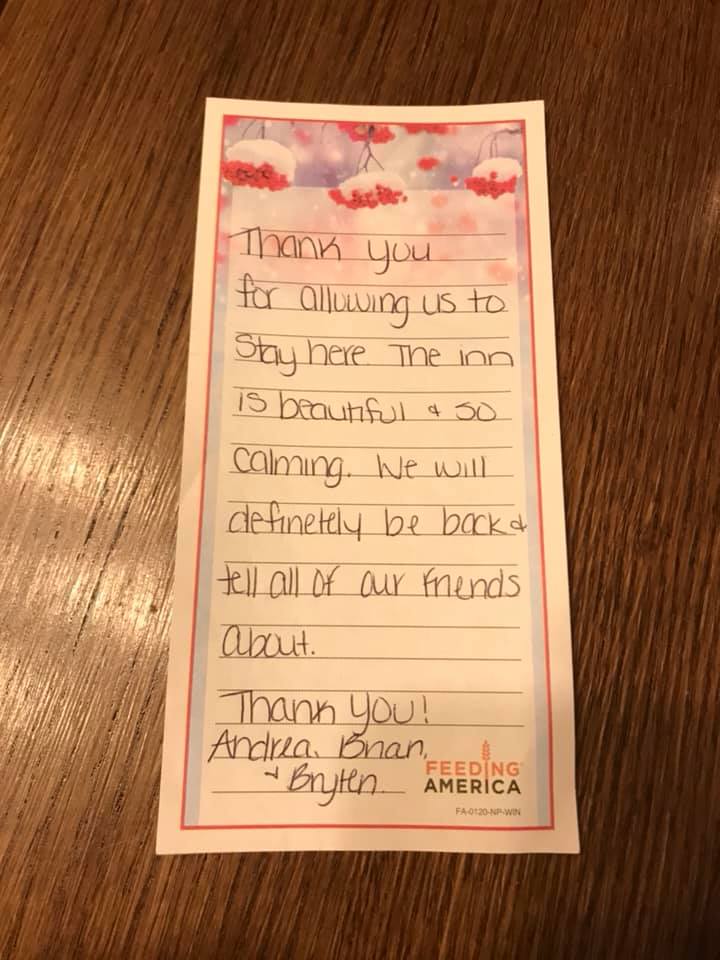 Thank you
for allowing us to
Stay here. The inn
is beautiful & so
calming. We will
definetely be back &
tell all of our friends
about.
Thank you!
Andrea, Brian,
& Bryten
FEEDING
AMERICA
FA-0120-NP-WIN